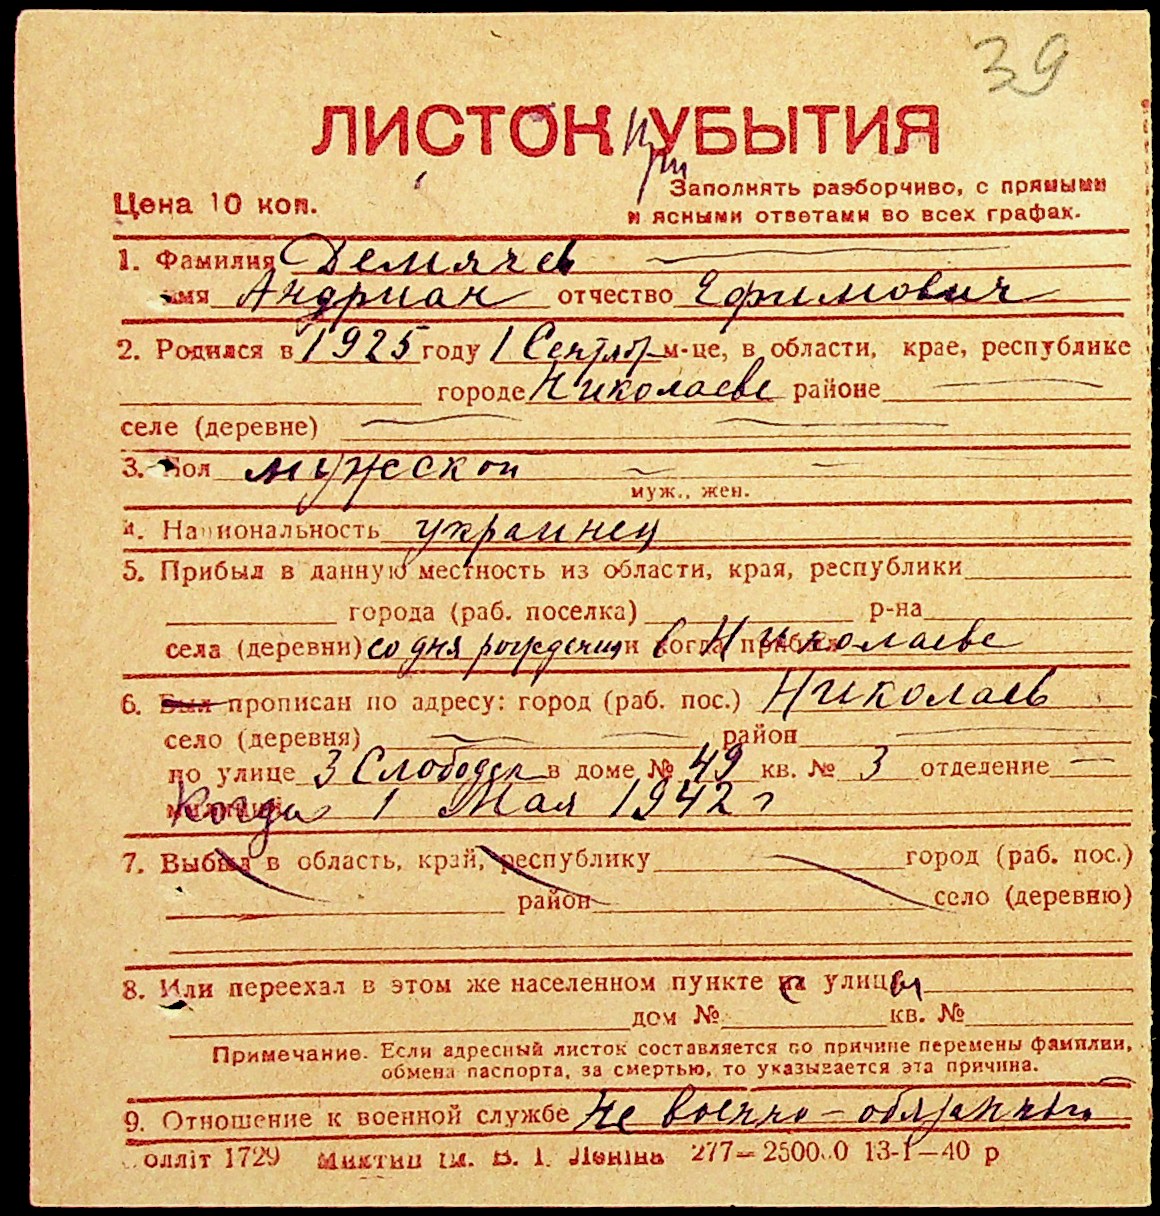 39
ЛИСТОК УБЫТИЯ
При
Цена 10 коп.
Заполнять разборчиво, с прямыми
и ясными ответами во всех графах.
1. Фамилия Демячев
имя Андриан отчество Ефимович
2. Родился в 1925 году 1 Сентябр м-це, в области, крае, республике
городе Николаеве районе
селе (деревне)
3. Пол мужской
муж., жен.
4. Национальность украинец
5. Прибыл в данную местность из области, края, республики
города (раб. поселка) р-на
села (деревни) со дня рождения и когда прибыл в Николаеве
6. Был прописан по адресу: город (раб. пос.) Николаев
село (деревня) район
по улице 3 Слободск в доме № 49 кв. № 3 отделение
Когда 1 Мая 1942 г
7. Выбыл в область, край, республику город (раб. пос.)
район село (деревню)
8. Или переехал в этом же населенном пункте с улицы
дом № кв. №
Примечание. Если адресный листок составляется по причине перемены фамилии,
обмена паспорта, за смертью, то указывается эта причина.
9. Отношение к военной службе не военно-обязаный
олліт 1729 ім. В. І. Леніна 277— 13-I—40 р